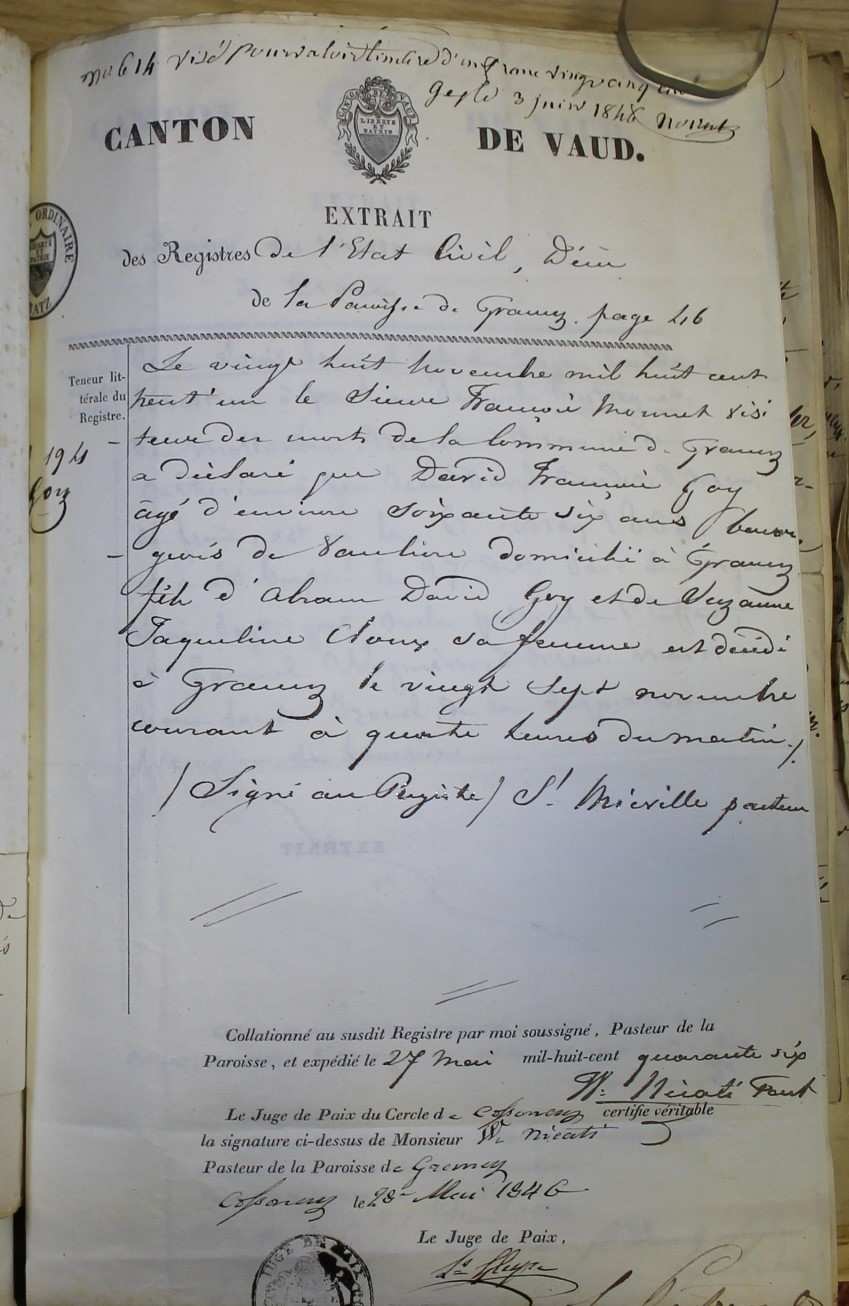 visé pour valoir timbre d'un franc vingt cinq
Gex le 3 juin 1846
CANTON DE VAUD.
CANTON DE VAUD
LIBERTÉ ET PATRIE
EXTRAIT
des Registres de l'Etat Civil, Décès
de la Paroisse de Grancy. page 46
ORDINAIRE
BATZ
Teneur lit-
térale du
Registre.
194
Goy
Le vingt huit Novembre mil huit cent
trent'un le Sieur François Monnet visi
teur des morts de la Commune de Grancy
a déclaré que David François Goy
âgé d'environ soixante six ans bour-
geois de Vaulion domicilié à Grancy
fils d'Abram David Goy et de Suzanne
Jaqueline sa femme est décédé
à Grancy le vingt sept novembre
courant à quatre heures du matin./
/Signé au Registre/ St Miéville pasteur
Collationné au susdit Registre par moi soussigné, Pasteur de la
Paroisse, et expédié le 27 Mai mil-huit-cent quarante six
W. Nicati Past
Le Juge de Paix du Cercle de Cossonay certifie véritable
la signature ci-dessus de Monsieur W. Nicati
Pasteur de la Paroisse de Grancy
Cossonay le 28 Mai 1846
Le Juge de Paix,
JUGE DE PAIX